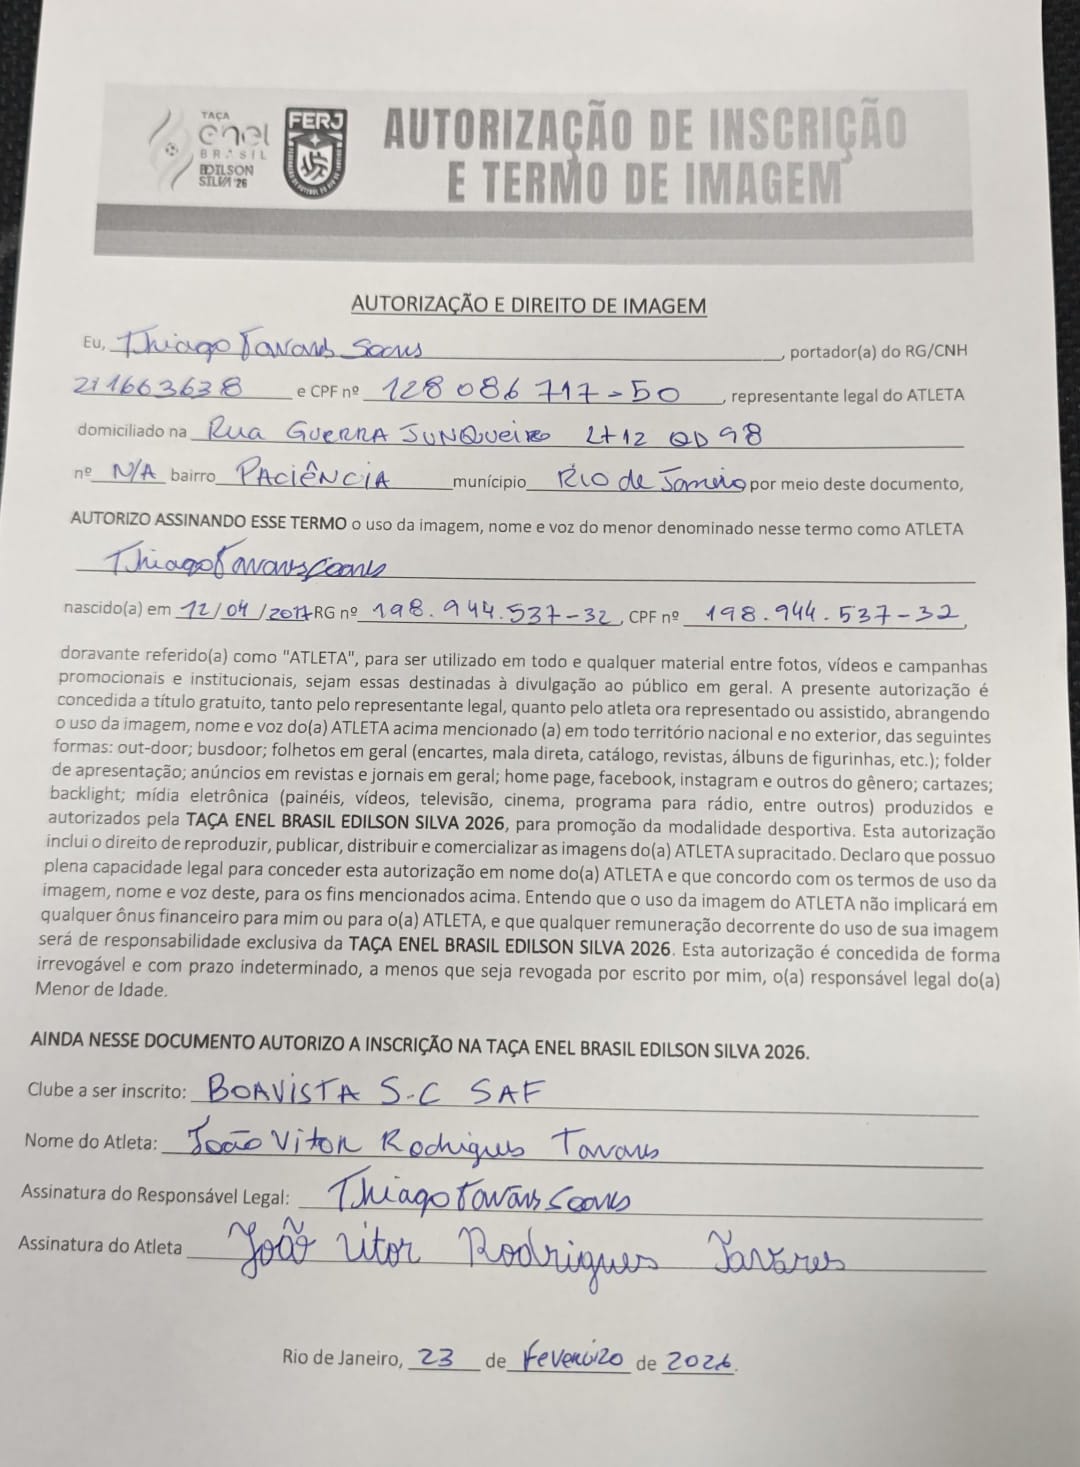 TAÇA
enel
BRASIL
EDILSON
SILVA '26
FERJ
AUTORIZAÇÃO DE INSCRIÇÃO
E TERMO DE IMAGEM
AUTORIZAÇÃO E DIREITO DE IMAGEM
Eu, Thiago Tavares Soares, portador(a) do RG/CNH
211663638 e CPF nº 128 086 717-50, representante legal do ATLETA
domiciliado na Rua GUERRA JUNQUEIRO LT12 QD 98
nº N/A bairro PACIÊNCIA munícipio Rio de Janeiro por meio deste documento,
AUTORIZO ASSINANDO ESSE TERMO o uso da imagem, nome e voz do menor denominado nesse termo como ATLETA
Thiago Tavares Soares
nascido(a) em 12/04/2017 RG nº 198.944.537-32, CPF nº 198.944.537-32,
doravante referido(a) como "ATLETA", para ser utilizado em todo e qualquer material entre fotos, vídeos e campanhas
promocionais e institucionais, sejam essas destinadas à divulgação ao público em geral. A presente autorização é
concedida a título gratuito, tanto pelo representante legal, quanto pelo atleta ora representado ou assistido, abrangendo
o uso da imagem, nome e voz do(a) ATLETA acima mencionado (a) em todo território nacional e no exterior, das seguintes
formas: out-door; busdoor; folhetos em geral (encartes, mala direta, catálogo, revistas, álbuns de figurinhas, etc.); folder
de apresentação; anúncios em revistas e jornais em geral; home page, facebook, instagram e outros do gênero; cartazes;
backlight; mídia eletrônica (painéis, vídeos, televisão, cinema, programa para rádio, entre outros) produzidos e
autorizados pela TAÇA ENEL BRASIL EDILSON SILVA 2026, para promoção da modalidade desportiva. Esta autorização
inclui o direito de reproduzir, publicar, distribuir e comercializar as imagens do(a) ATLETA supracitado. Declaro que possuo
plena capacidade legal para conceder esta autorização em nome do(a) ATLETA e que concordo com os termos de uso da
imagem, nome e voz deste, para os fins mencionados acima. Entendo que o uso da imagem do ATLETA não implicará em
qualquer ônus financeiro para mim ou para o(a) ATLETA, e que qualquer remuneração decorrente do uso de sua imagem
será de responsabilidade exclusiva da TAÇA ENEL BRASIL EDILSON SILVA 2026. Esta autorização é concedida de forma
irrevogável e com prazo indeterminado, a menos que seja revogada por escrito por mim, o(a) responsável legal do(a)
Menor de Idade.
AINDA NESSE DOCUMENTO AUTORIZO A INSCRIÇÃO NA TAÇA ENEL BRASIL EDILSON SILVA 2026.
Clube a ser inscrito: BOAVISTA S.C SAF
Nome do Atleta: João Vitor Rodrigues Tavares
Assinatura do Responsável Legal: Thiago Tavares Soares
Assinatura do Atleta João Vitor Rodrigues Tavares
Rio de Janeiro, 23 de fevereiro de 2026.